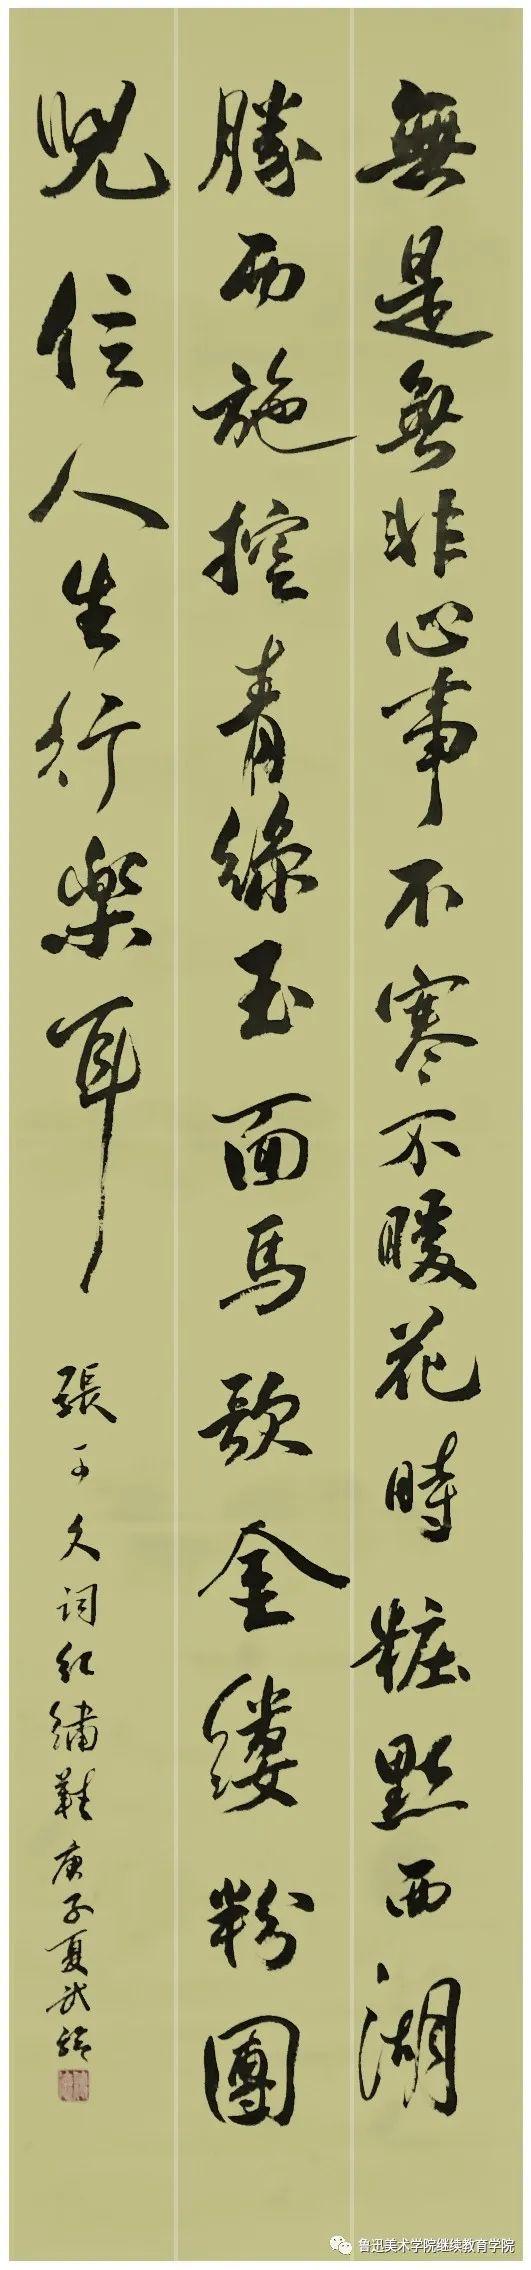 無是無非心事不寒不暖花時粧點西湖
勝西施控青絲玉面馬歌金縷粉團
兒信人生行樂耳
張可久詞紅繡鞋庚子夏武
鲁迅美术学院继续教育学院